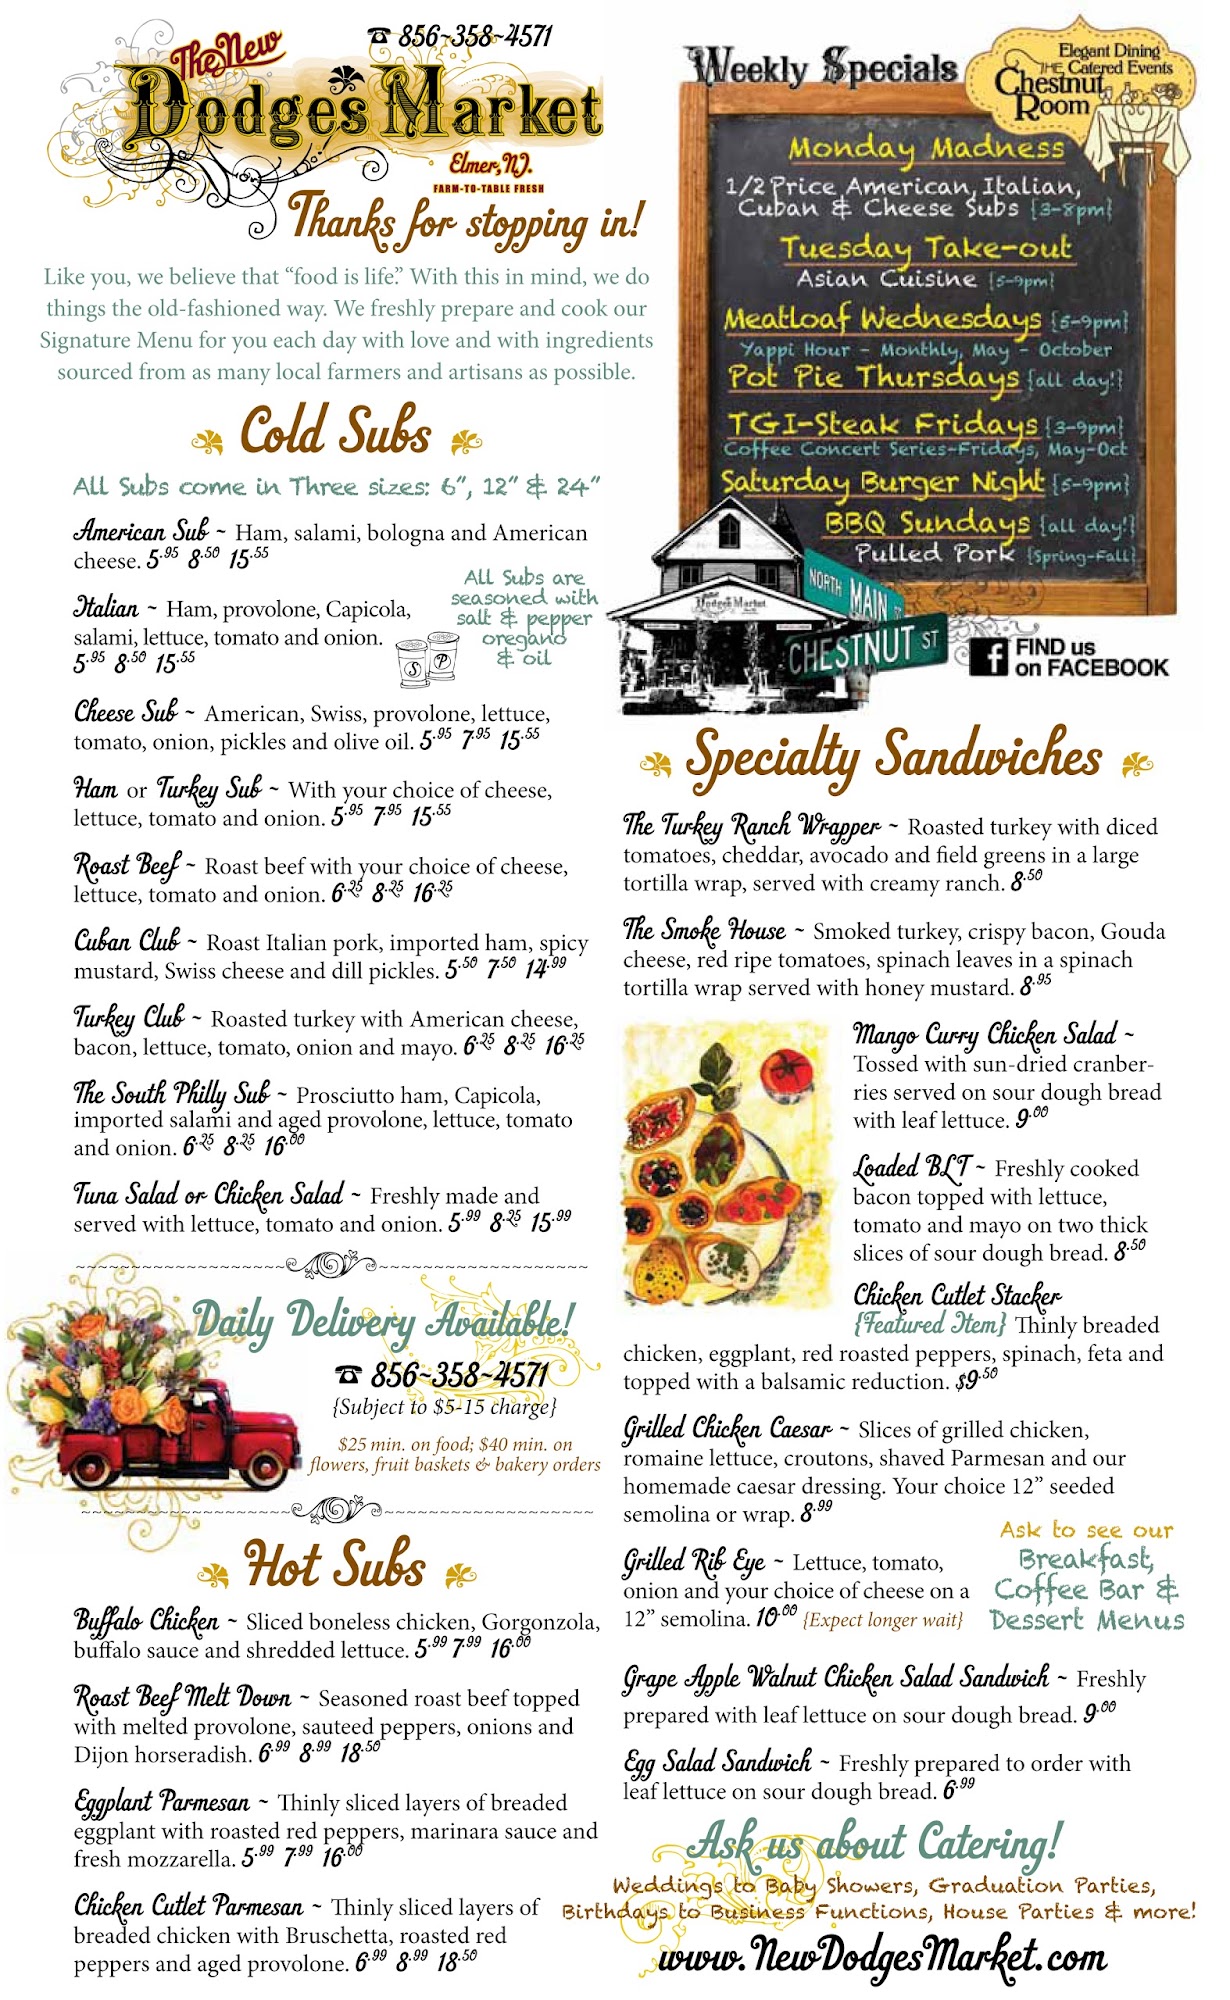 ☎ 856~358~4571
The New
Dodge's Market
Elmer, NJ.
FARM-TO-TABLE FRESH
Thanks for stopping in!
Like you, we believe that “food is life.” With this in mind, we do
things the old-fashioned way. We freshly prepare and cook our
Signature Menu for you each day with love and with ingredients
sourced from as many local farmers and artisans as possible.
Cold Subs
All Subs come in Three sizes: 6”, 12” & 24”
American Sub ~ Ham, salami, bologna and American
cheese. 5.95 8.50 15.55
Italian ~ Ham, provolone, Capicola,
salami, lettuce, tomato and onion.
5.95 8.50 15.55
All Subs are
seasoned with
salt & pepper
oregano
& oil
S P
Cheese Sub ~ American, Swiss, provolone, lettuce,
tomato, onion, pickles and olive oil. 5.95 7.95 15.55
Ham or Turkey Sub ~ With your choice of cheese,
lettuce, tomato and onion. 5.95 7.95 15.55
Roast Beef ~ Roast beef with your choice of cheese,
lettuce, tomato and onion. 6.25 8.25 16.25
Cuban Club ~ Roast Italian pork, imported ham, spicy
mustard, Swiss cheese and dill pickles. 5.50 7.50 14.99
Turkey Club ~ Roasted turkey with American cheese,
bacon, lettuce, tomato, onion and mayo. 6.25 8.25 16.25
The South Philly Sub ~ Prosciutto ham, Capicola,
imported salami and aged provolone, lettuce, tomato
and onion. 6.25 8.25 16.00
Tuna Salad or Chicken Salad ~ Freshly made and
served with lettuce, tomato and onion. 5.99 8.25 15.99
Daily Delivery Available!
☎ 856~358~4571
{Subject to $5-15 charge}
$25 min. on food; $40 min. on
flowers, fruit baskets & bakery orders
Hot Subs
Buffalo Chicken ~ Sliced boneless chicken, Gorgonzola,
buffalo sauce and shredded lettuce. 5.99 7.99 16.00
Roast Beef Melt Down ~ Seasoned roast beef topped
with melted provolone, sauteed peppers, onions and
Dijon horseradish. 6.99 8.99 18.50
Eggplant Parmesan ~ Thinly sliced layers of breaded
eggplant with roasted red peppers, marinara sauce and
fresh mozzarella. 5.99 7.99 16.00
Chicken Cutlet Parmesan ~ Thinly sliced layers of
breaded chicken with Bruschetta, roasted red
peppers and aged provolone. 6.99 8.99 18.50
Weekly Specials
Elegant Dining
THE Catered Events
Chestnut
Room
Monday Madness
1/2 Price American, Italian,
Cuban & Cheese Subs {3-8pm}
Tuesday Take-out
Asian Cuisine {5-9pm}
Meatloaf Wednesdays {5-9pm}
Yappi Hour - Monthly, May - October
Pot Pie Thursdays {all day!}
TGI-Steak Fridays {3-9pm}
Coffee Concert Series-Fridays, May-Oct
Saturday Burger Night {5-9pm}
BBQ Sundays {all day!}
Pulled Pork {Spring-Fall}
Dodge's Market
NORTH MAIN ST
CHESTNUT ST
f FIND us
on FACEBOOK
Specialty Sandwiches
The Turkey Ranch Wrapper ~ Roasted turkey with diced
tomatoes, cheddar, avocado and field greens in a large
tortilla wrap, served with creamy ranch. 8.50
The Smoke House ~ Smoked turkey, crispy bacon, Gouda
cheese, red ripe tomatoes, spinach leaves in a spinach
tortilla wrap served with honey mustard. 8.95
Mango Curry Chicken Salad ~
Tossed with sun-dried cranber-
ries served on sour dough bread
with leaf lettuce. 9.00
Loaded BLT ~ Freshly cooked
bacon topped with lettuce,
tomato and mayo on two thick
slices of sour dough bread. 8.50
Chicken Cutlet Stacker
{Featured Item} Thinly breaded
chicken, eggplant, red roasted peppers, spinach, feta and
topped with a balsamic reduction. $9.50
Grilled Chicken Caesar ~ Slices of grilled chicken,
romaine lettuce, croutons, shaved Parmesan and our
homemade caesar dressing. Your choice 12” seeded
semolina or wrap. 8.99
Grilled Rib Eye ~ Lettuce, tomato,
onion and your choice of cheese on a
12” semolina. 10.00 {Expect longer wait}
Ask to see our
Breakfast,
Coffee Bar &
Dessert Menus
Grape Apple Walnut Chicken Salad Sandwich ~ Freshly
prepared with leaf lettuce on sour dough bread. 9.00
Egg Salad Sandwich ~ Freshly prepared to order with
leaf lettuce on sour dough bread. 6.99
Ask us about Catering!
Weddings to Baby Showers, Graduation Parties,
Birthdays to Business Functions, House Parties & more!
www.NewDodgesMarket.com